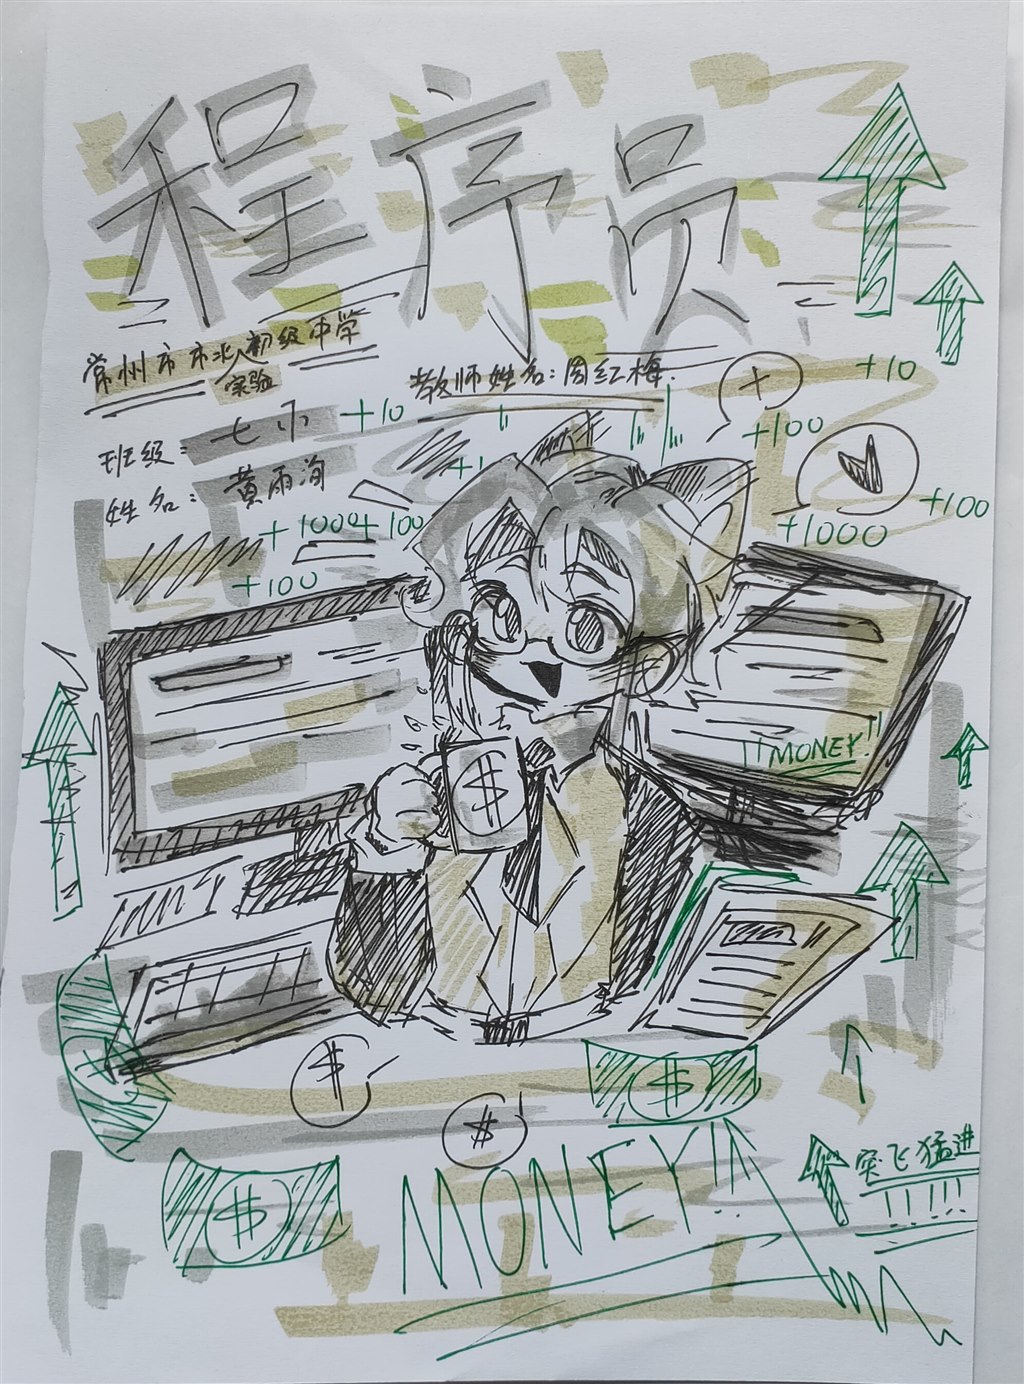 程序员
常州市市北初级中学
实验
教师姓名:周红梅.
班级:
姓名: 黄雨洵
+10
+10
+100
+1
+100
+1000
+100
+100
+100
MONEY!!
$
$
$
$
$
$
MONEY!!
突飞猛进
!!!!!